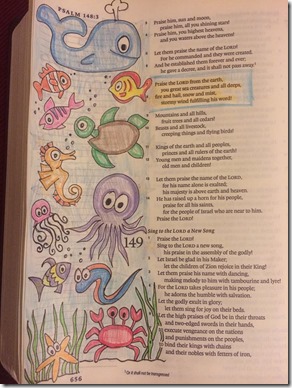 PSALM 148:3
3 Praise him, sun and moon,
praise him, all you shining stars!
4 Praise him, you highest heavens,
and you waters above the heavens!
5 Let them praise the name of the LORD!
For he commanded and they were created.
6 And he established them forever and ever;
he gave a decree, and it shall not pass away.
7 Praise the LORD from the earth,
you great sea creatures and all deeps,
8 fire and hail, snow and mist,
stormy wind fulfilling his word!
9 Mountains and all hills,
fruit trees and all cedars!
10 Beasts and all livestock,
creeping things and flying birds!
11 Kings of the earth and all peoples,
princes and all rulers of the earth!
12 Young men and maidens together,
old men and children!
13 Let them praise the name of the LORD,
for his name alone is exalted;
his majesty is above earth and heaven.
14 He has raised up a horn for his people,
praise for all his saints,
for the people of Israel who are near to him.
Praise the LORD!
Sing to the LORD a New Song
149
Praise the LORD!
Sing to the LORD a new song,
his praise in the assembly of the godly!
Let Israel be glad in his Maker;
let the children of Zion rejoice in their King!
Let them praise his name with dancing,
making melody to him with tambourine and lyre!
For the LORD takes pleasure in his people;
he adorns the humble with salvation.
Let the godly exult in glory;
let them sing for joy on their beds.
Let the high praises of God be in their throats
and two-edged swords in their hands,
to execute vengeance on the nations
and punishments on the peoples,
to bind their kings with chains
and their nobles with fetters of iron,
656